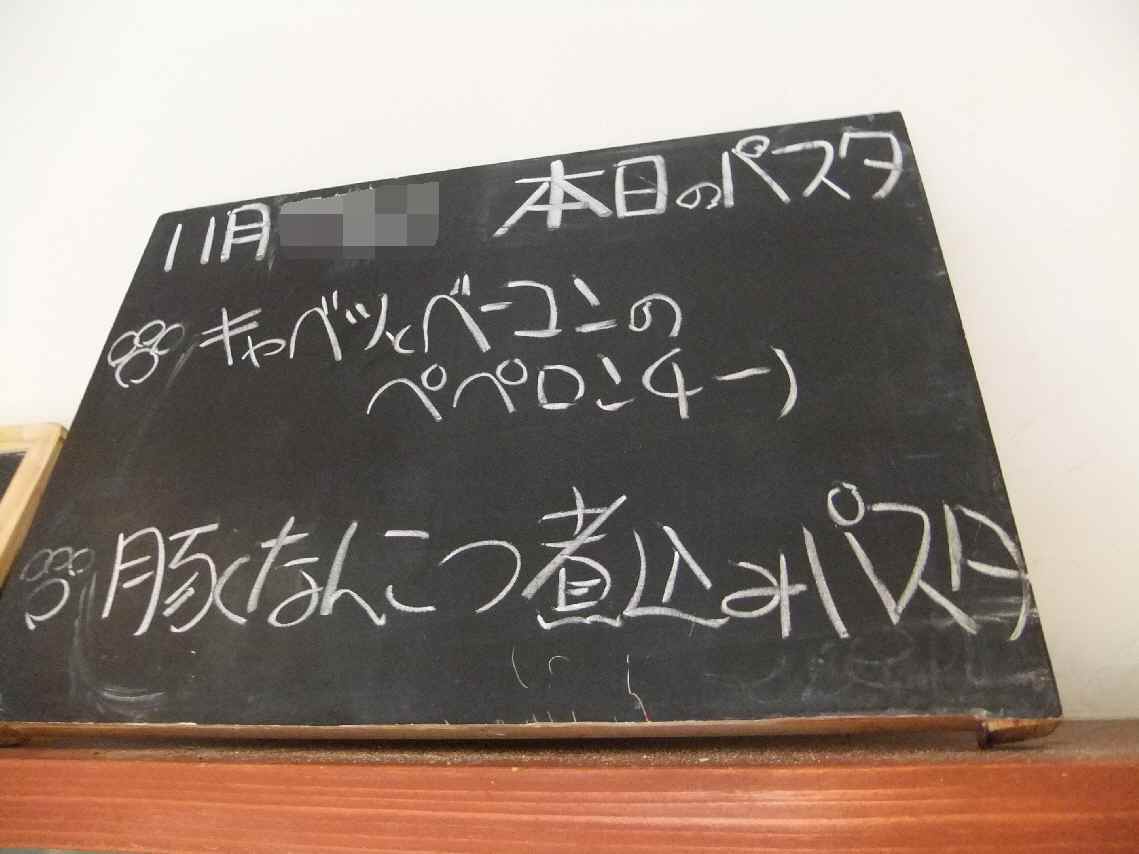 11月
本日のパスタ
キャベツとベーコンの
ペペロンチーノ
豚なんこつ煮込みパスタ